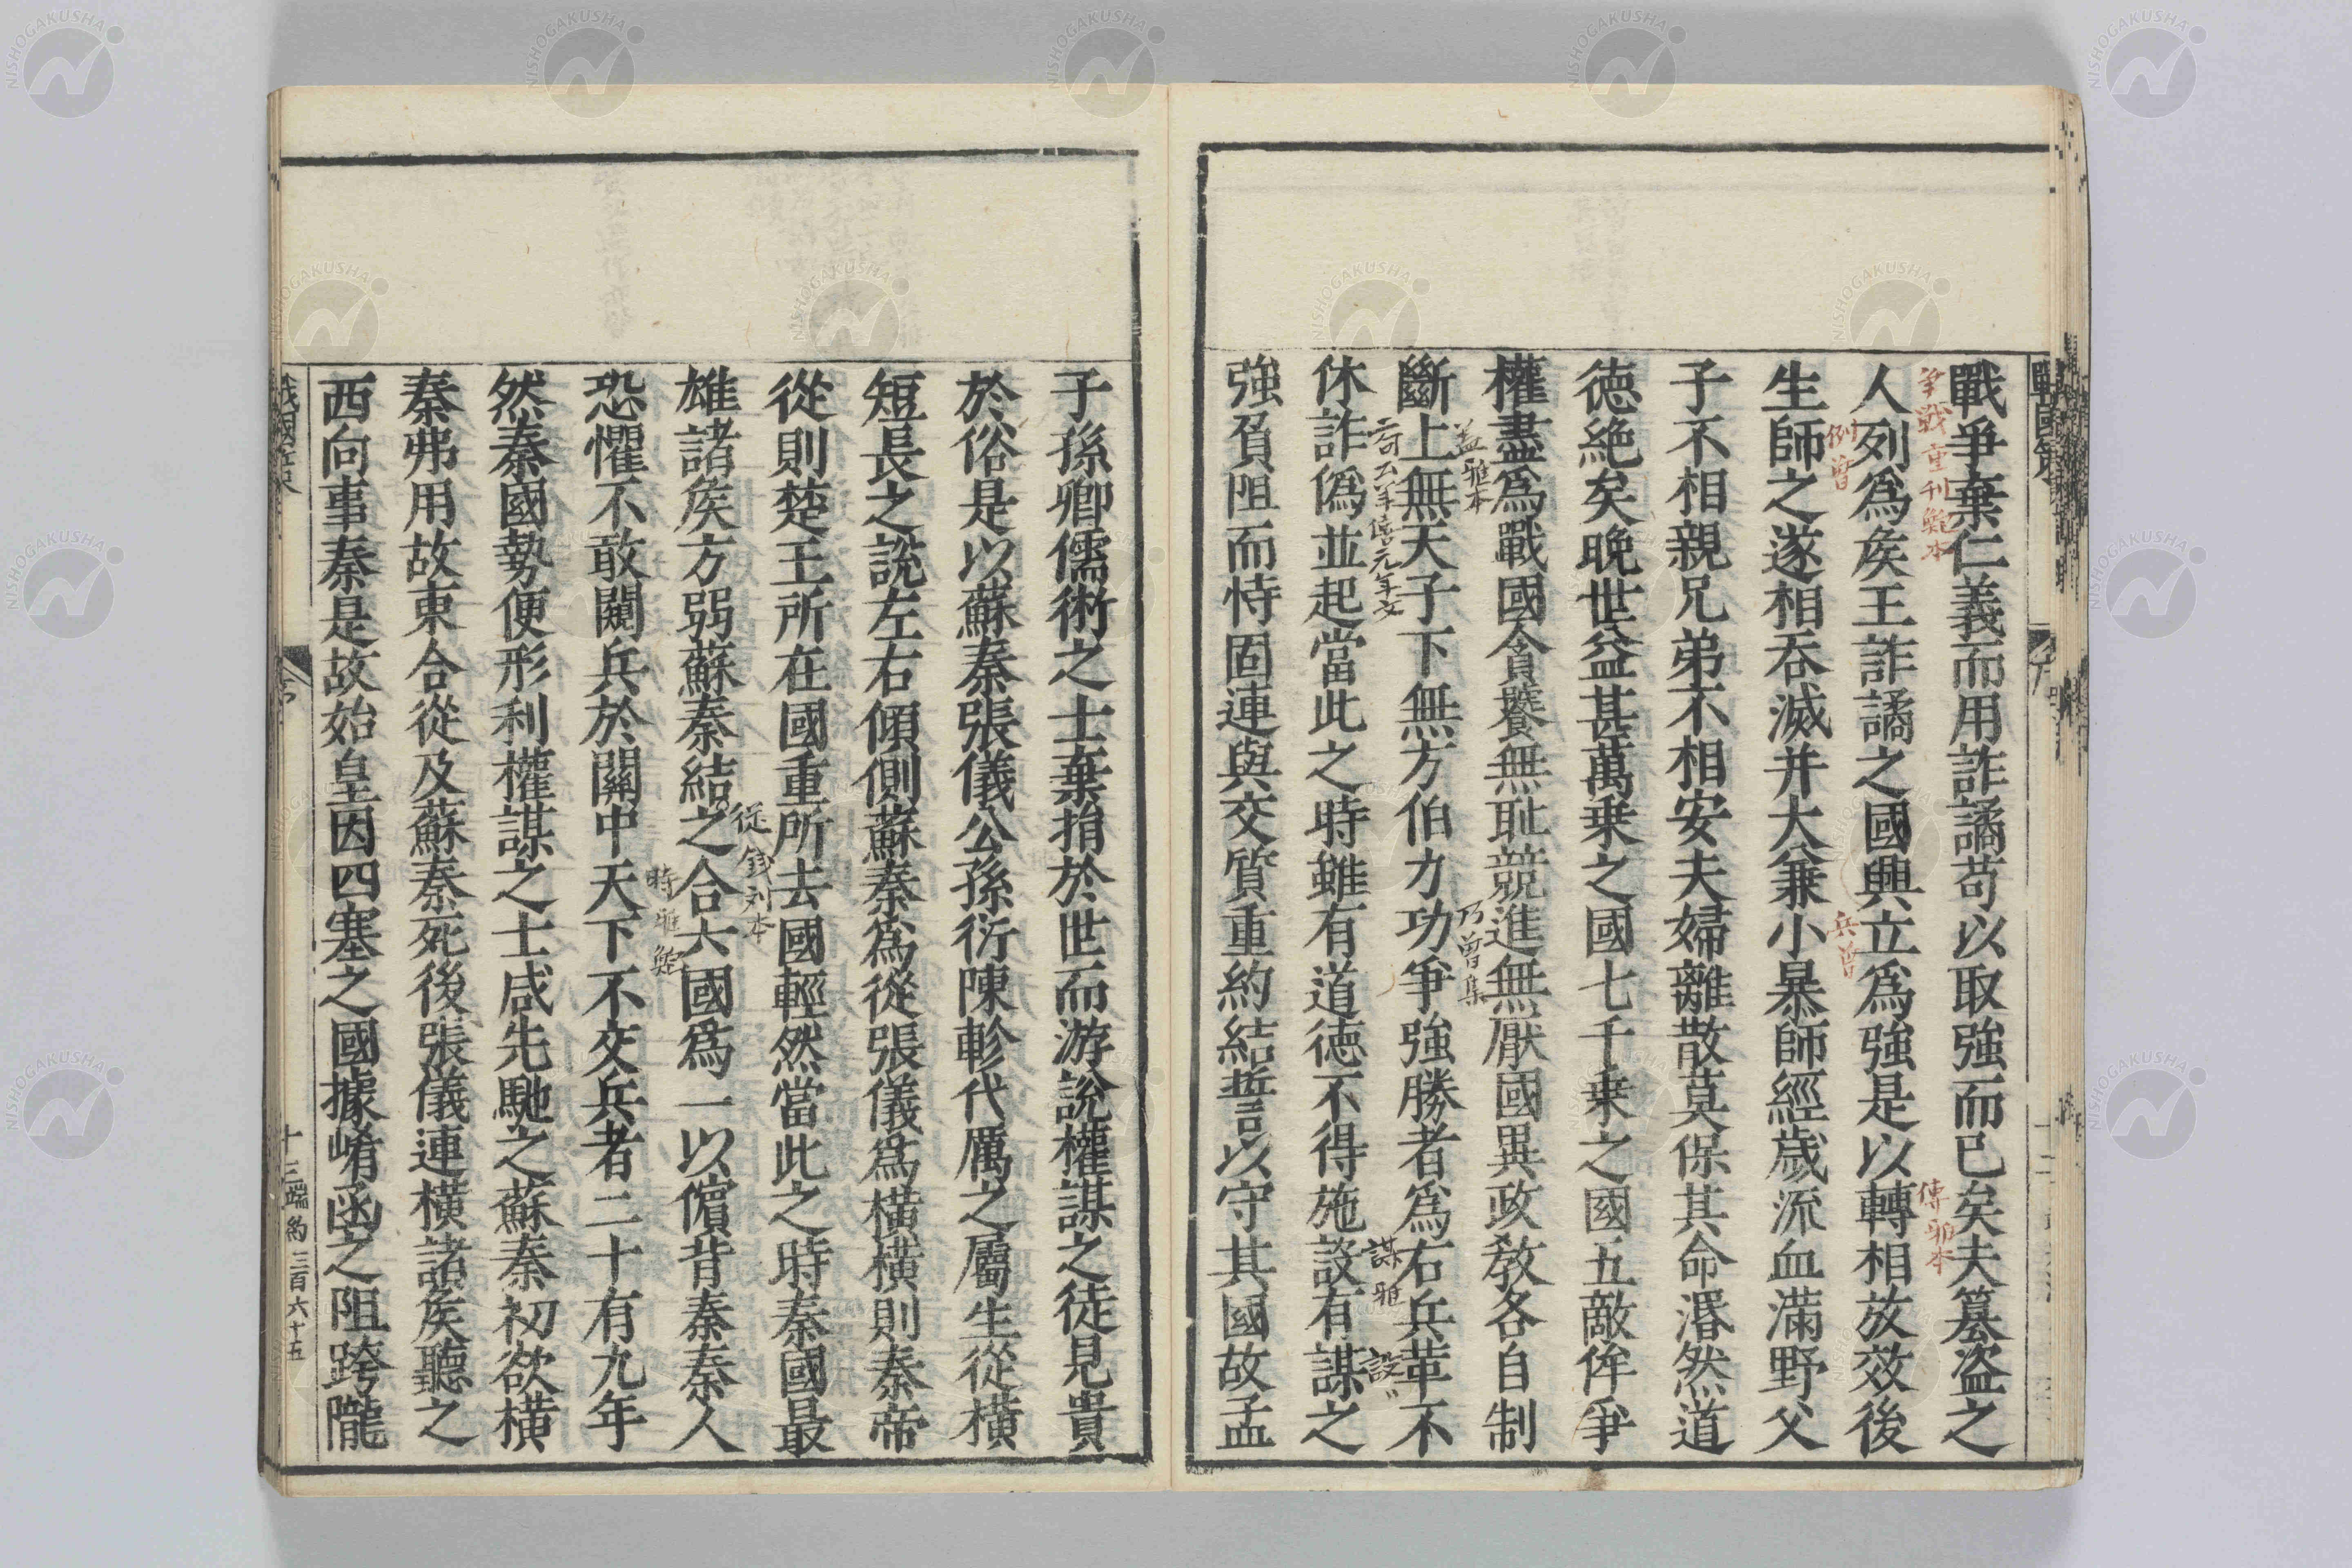 戰國策
戰爭棄仁義而用詐譎苟以取強而已矣夫篡盜之
爭戰重刊鮑本
傳雅本
人列爲矦王詐譎之國興立爲強是以轉相放效後
例曾
兵曾
生師之遂相吞滅并大兼小暴師經歲流血滿野父
子不相親兄弟不相安夫婦離散莫保其命湣然道
徳絶矣晚世益甚萬乗之國七千乗之國五敵侔爭
權盡爲戰國貪饕無耻競進無厭國異政敎各自制
盖雅本
乃曾集
斷上無天子下無方伯力功爭強勝者爲右兵革不
謀雅
設〻
休詐偽並起當此之時雖有道徳不得施設有謀之
強負阻而恃固連與交質重約結誓以守其國故孟
子孫卿儒術之士棄捐於世而游說權謀之徒見貴
於俗是以蘇秦張儀公孫衍陳軫代厲之屬生從橫
短長之說左右傾側蘇秦爲從張儀爲橫橫則秦帝
從則楚王所在國重所去國輕然當此之時秦國最
從錢刘本
雄諸矦方弱蘇秦結之合六國爲一以儐背秦秦人
時雅鮑
恐懼不敢闚兵於關中天下不交兵者二十有九年
然秦國勢便形利權謀之士咸先馳之蘇秦初欲橫
秦弗用故東合從及蘇秦死後張儀連橫諸矦聽之
西向事秦是故始皇因四塞之國據崤函之阻跨隴
戰國策
十三端
三百六十五
NISHOGAKUSHA